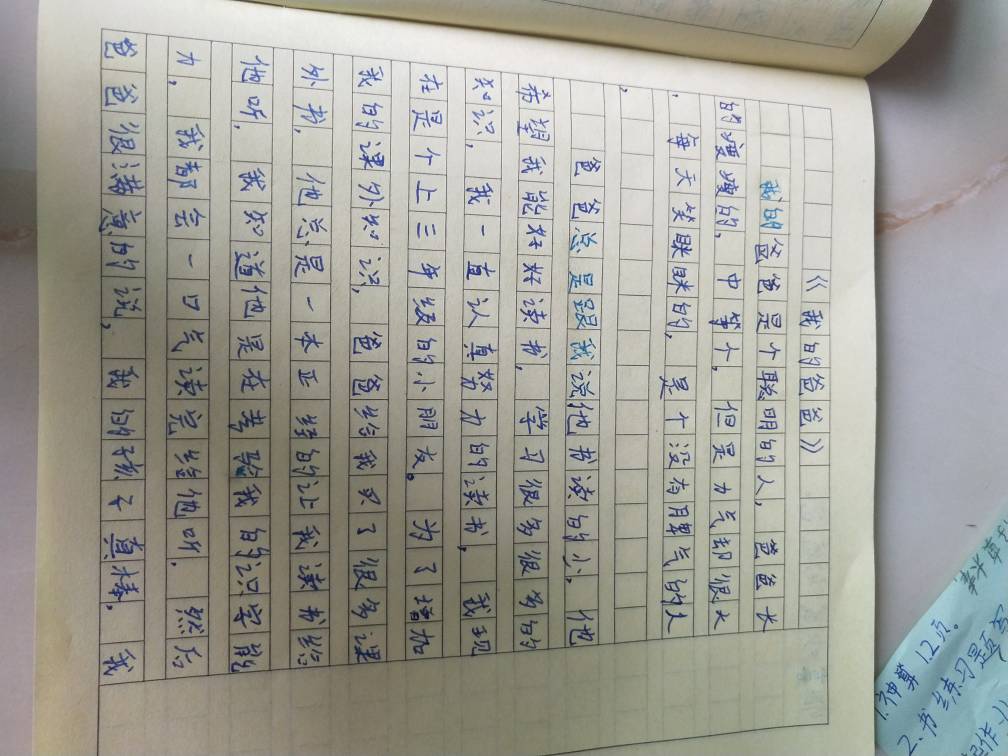 《我的爸爸》
我的爸爸是个聪明的人，爸爸长
的瘦瘦的，中等个，但是力气却很大
，每天笑眯眯的，是个没有脾气的人
，
爸爸总是跟我说他书读的少，他
希望我能好好读书，学习很多很多的
知识，我一直认真努力的读书，我现
在是个上三年级的小朋友。为了增加
我的课外知识，爸爸给我买了很多课
外书，他总是一本正经的让我读书给
他听，我知道他是在考验我的识字能
力，我都会一口气读完给他听．然后
爸爸很满意的说，我的孩子真棒，我
1.神算12页。
2.书练习题